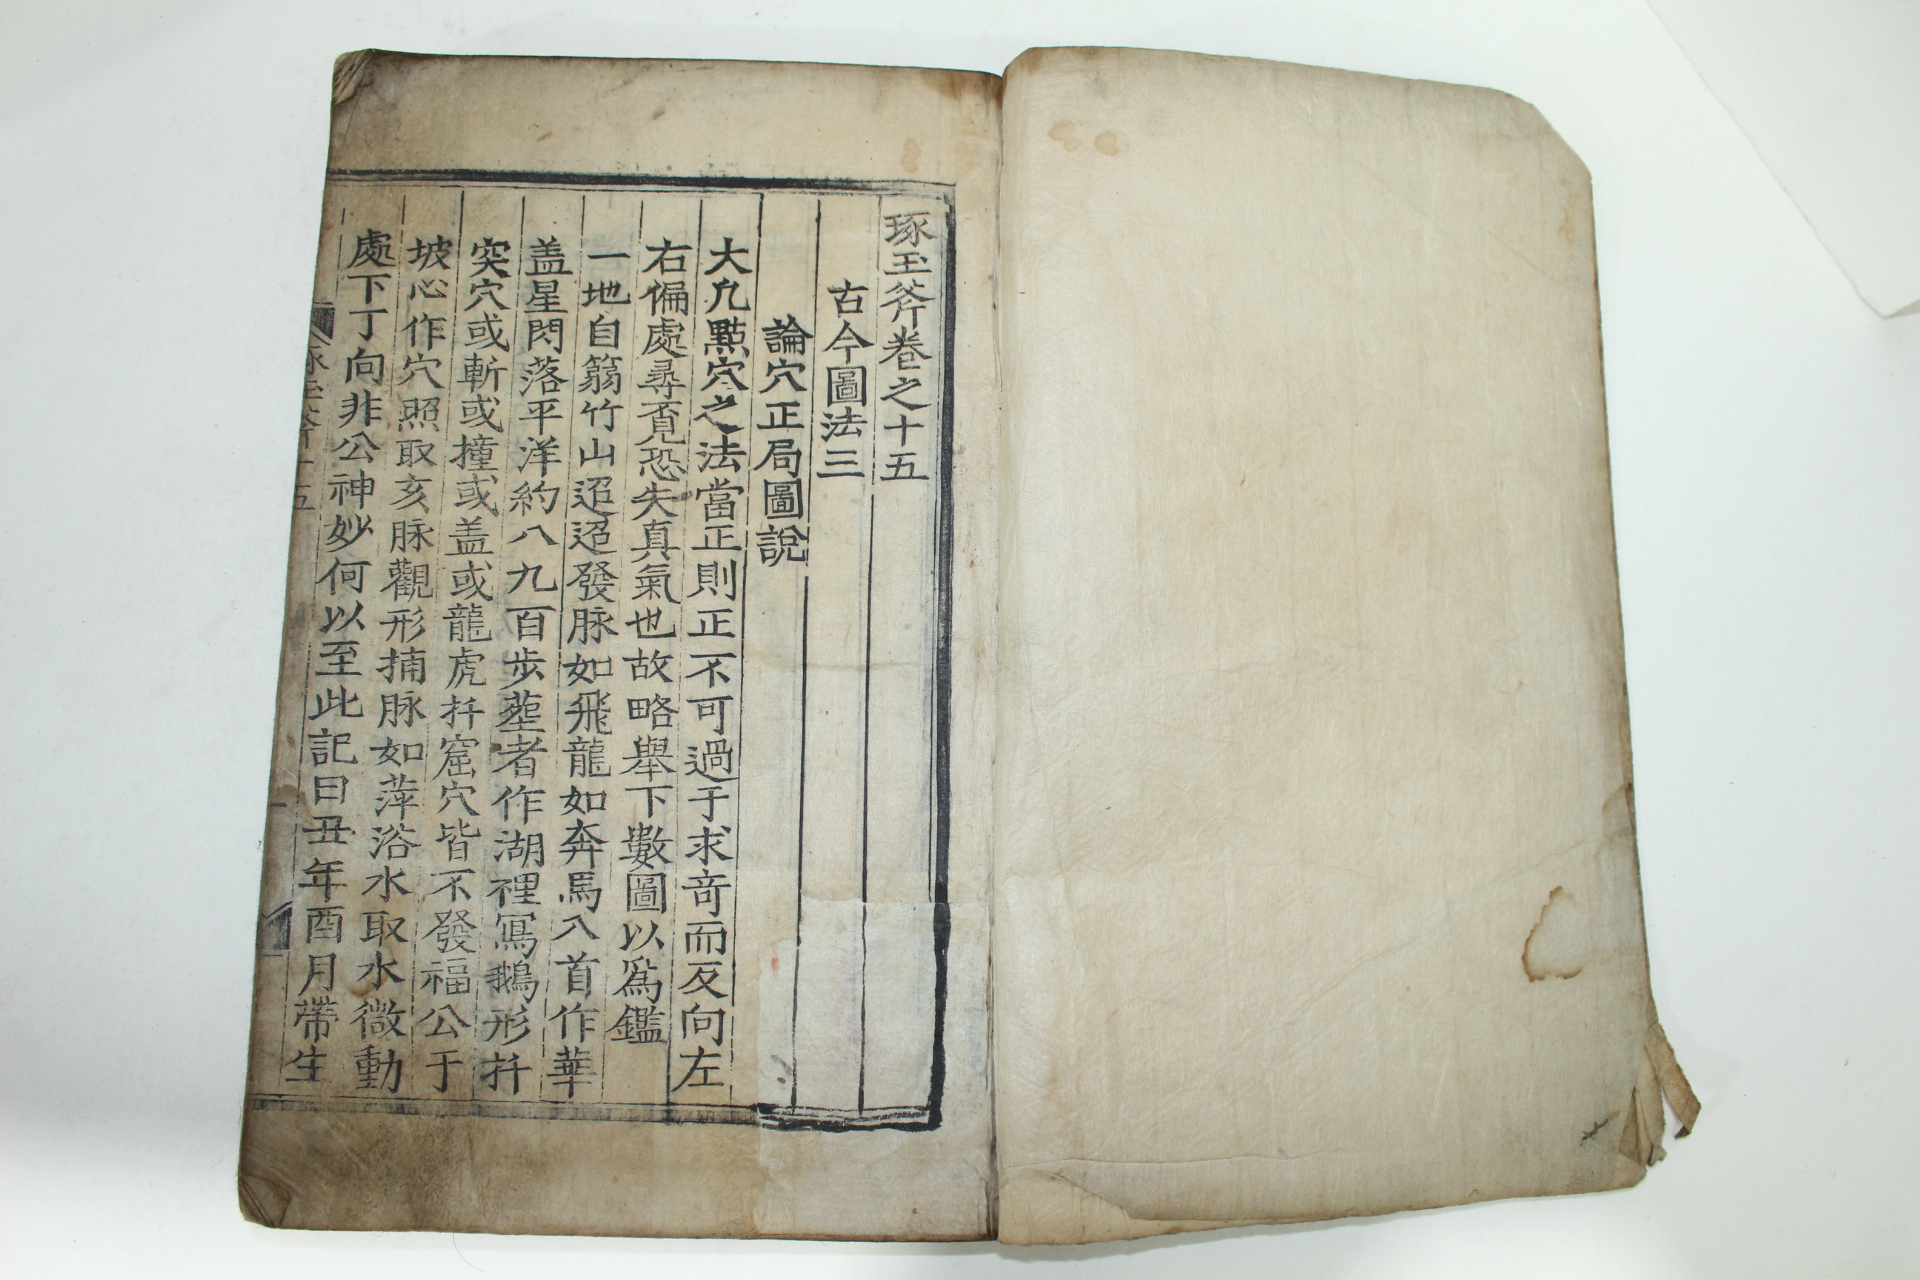 琢玉斧卷之十五
古今圖法三
論穴正局圖說
大凢點穴之法當正則正不可過于求竒而反向左
右偏處尋覔恐失真氣也故略舉下數圖以爲鑑
一地自篛竹山迢迢發脉如飛龍如奔馬八首作華
盖星閃落平洋約八九百步塟者作湖裡寫鵝形扦
突穴或斬或撞或盖或龍虎扦窟穴皆不發福公于
坡心作穴照取亥脉觀形捕脉如萍浴水取水微動
處下丁向非公神妙何以至此記曰丑年酉月帶生
琢玉斧十五